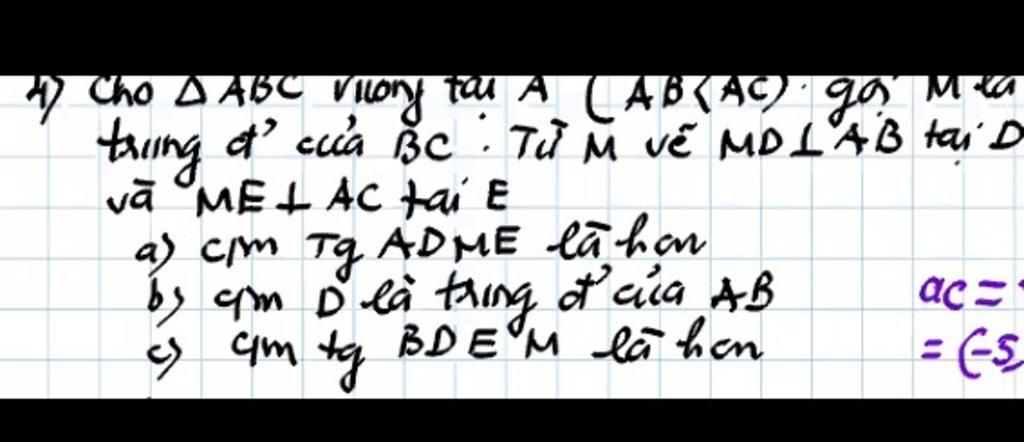 4) Cho △ ABC vuông tại A ( AB<AC). gọi M là
trung đ' của BC. Từ M vẽ MD⊥AB tại D
và ME⊥AC tại E
a) c/m Tg ADME là hcn
b) c/m D là trung đ' của AB
c) c/m tg BDEM là hcn
ac =
= (-5